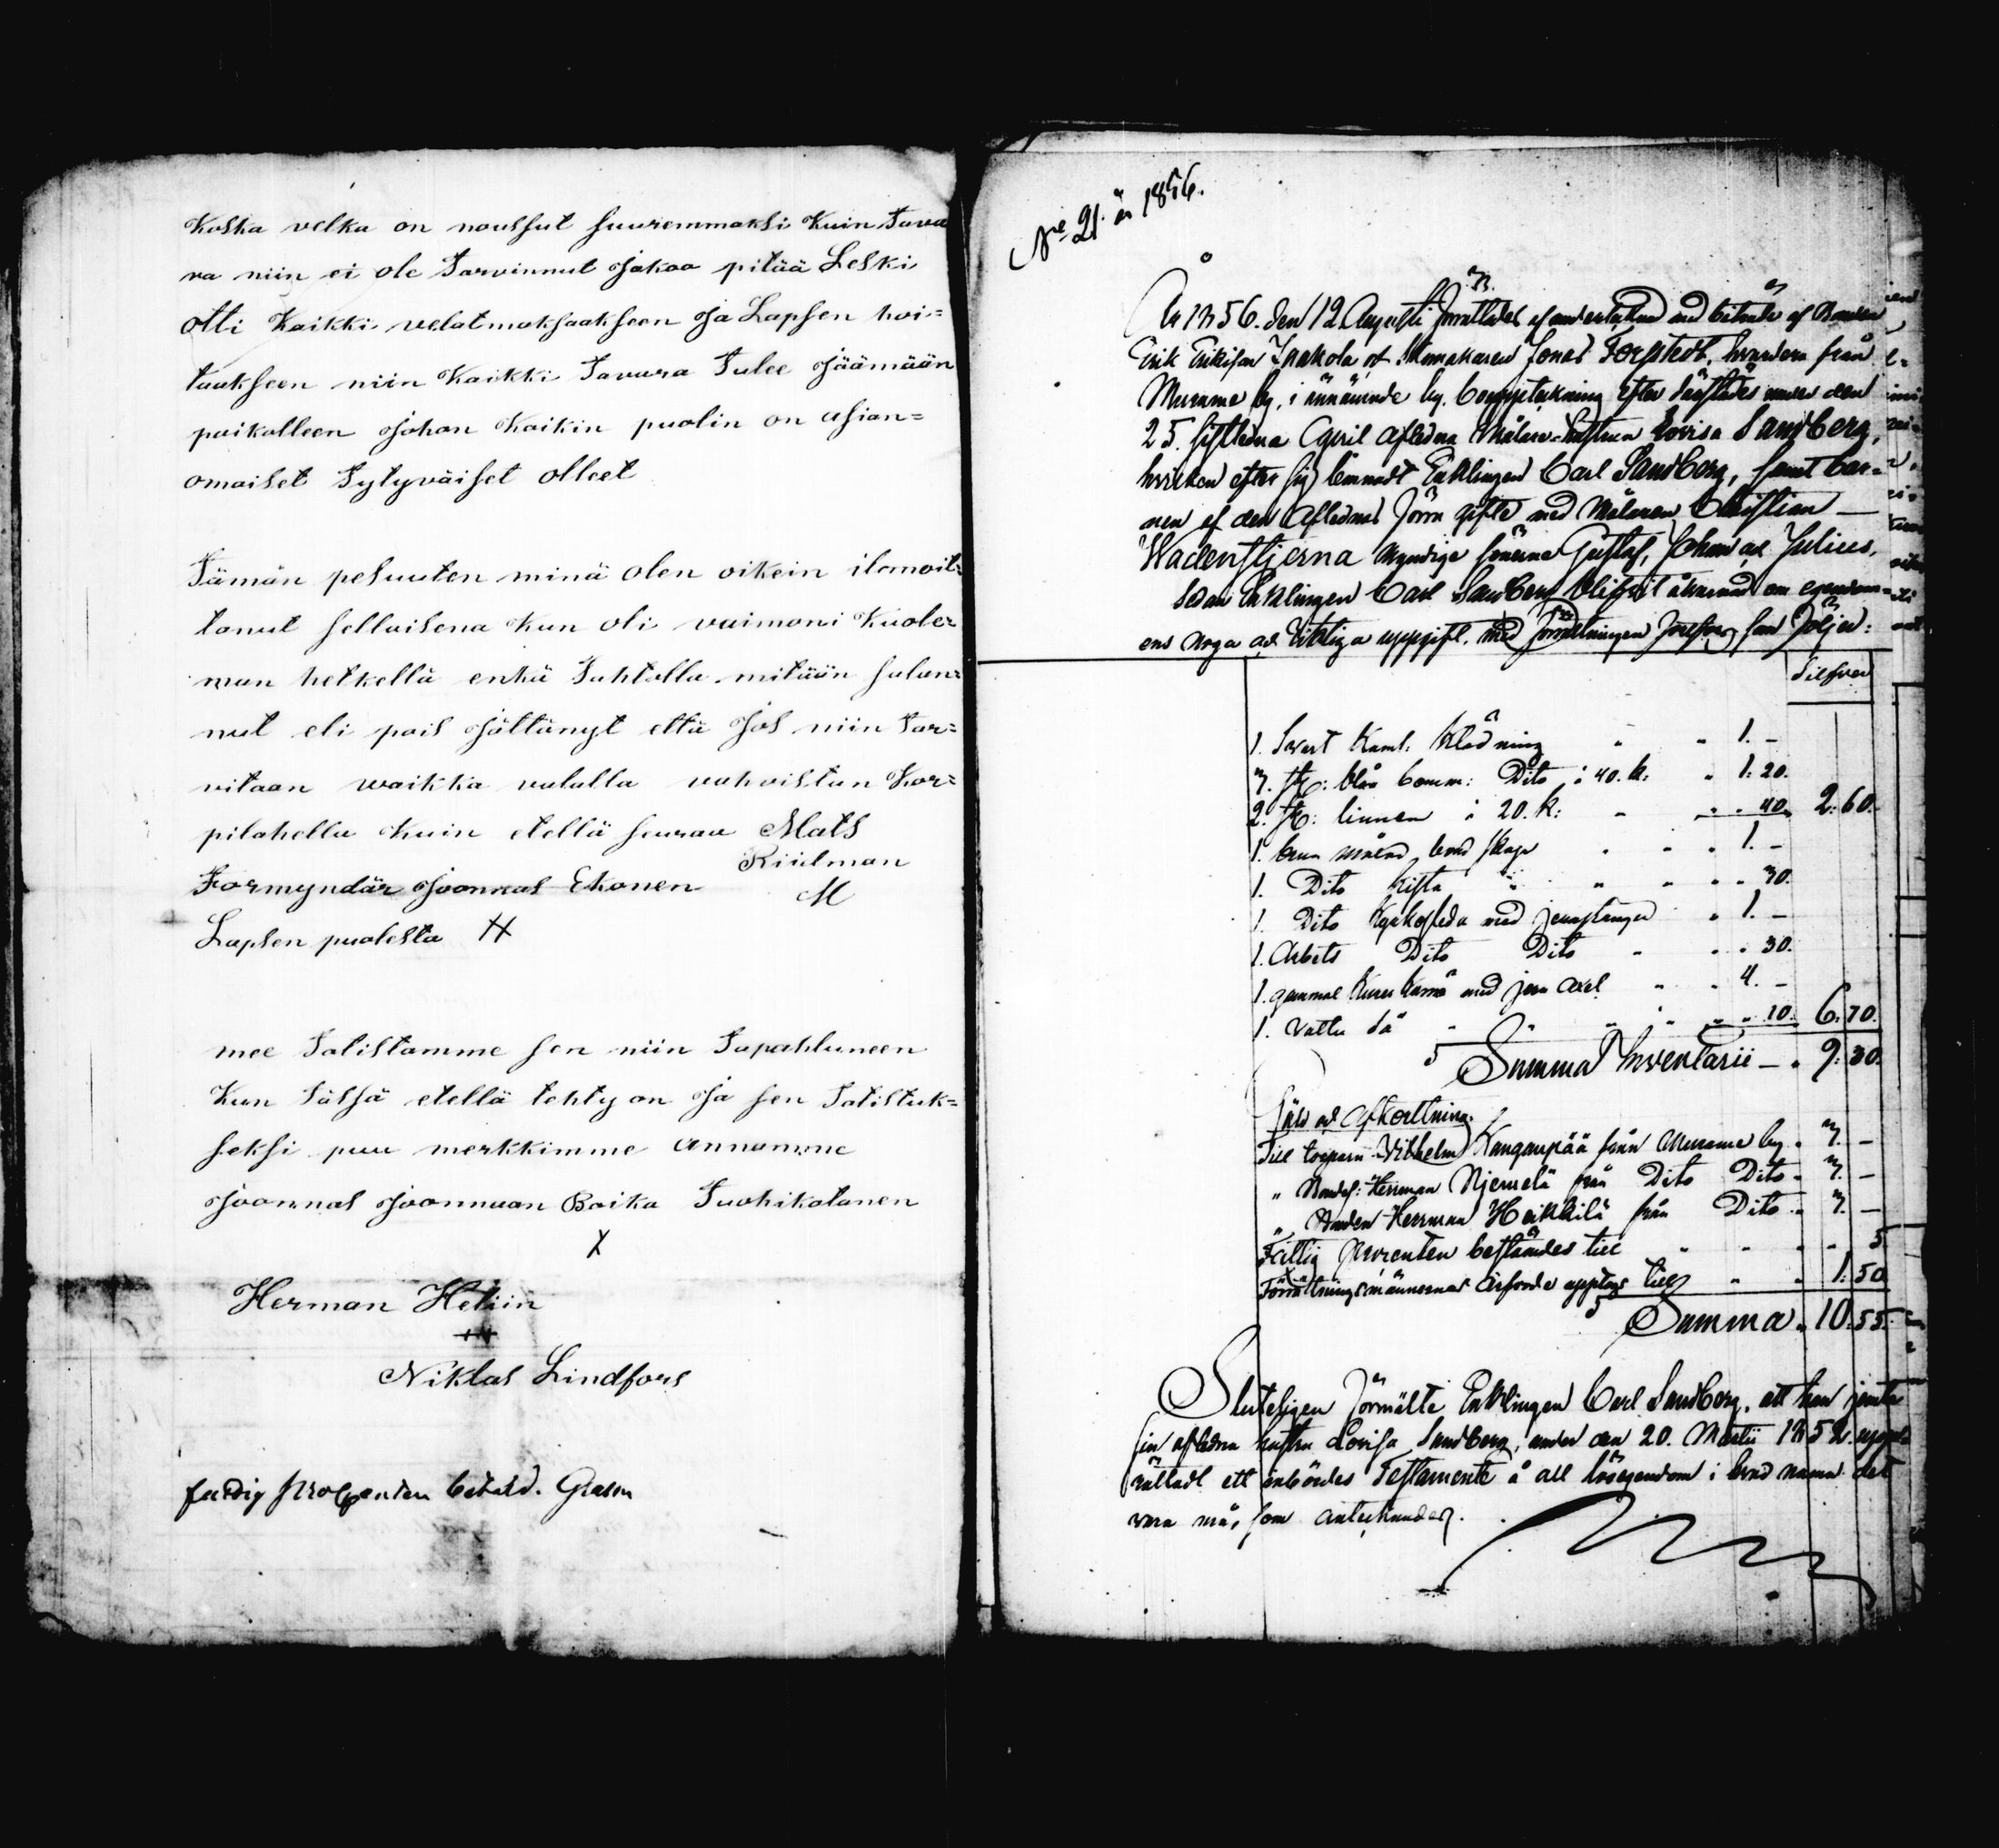 Koska velka on noussut suuremmaksi Kuin Tava
ra niin ei ole Tarvinnut Jakaa pitää Leski
otti Kaikki velatmaksaakseen Ja Lapsen hoi=
taakseen niin Kaikki Tavara Tulee Jäämään
paikalleen Johon Kaikin puolin on asian=
omaiset Tytyväiset olleet
Tämän pesuuten minä olen oikein ilmoit=
tanut sellaisena Kun oli vaimoni Kuole=
man hetkellä enkä Tahtolla mitään salan=
nut eli pois Jättänyt että Jos niin tar=
vitaan waikka valalla vahvistan Kor=
pilahella Kuin etellä seuraa Mats
Riidman
Formyndär Joonnas Ekonen M
Lapsen puolesta H
mee Totistamme sen niin Tapahtuneen
Kun Tässä etellä tehty on Ja sen Totistuk=
seksi puu merkkimme Annamme
Joonnas Joonnaan Boika Tuohikotanen
X
Herman Helin
Niklas Lindfors
fattig procenten betald. Grasm
No 21. år 1856.
År 1856. den 12 Augusti förrättades af undertecknad med biträde af Bonden
Erik Eriksson Isakola och Skomakaren Jonas Forstedt, hvardera från
Muramme by, i ännämnde by. bouppteckning efter därstädes under den
25. sistledne April aflidna Målare-hustrun Lovisa Sandberg,
hvilken efter sig lemnadt Enklingen Carl Sandberg, samt bar-
nen af den Aflidnas förra gifte med Målaren Christian
Wadenstjerna myndige sönerne Gustaf, Johan och Julius.
Sedan Enklingen Carl Sandberg blifvit åhrmad om egendom-
ens noga och riktiga uppgift. med förrättningen som följer:
Silfver
1. Svart Kaml: Klädning " " 1. –
3. st: blåa bomm: Dito á 40. k: " 1: 20.
2. st: linnen á 20. k: " " 40. 2: 60.
1. brun målad bord skåp " " 1. –
1. Dito Kista " " " 30.
1. Dito Kyrkosleda med jernstänger " 1. –
1. Arbets Dito Dito " " 30.
1. gammal Kärra med jern axel " " 4. –
1. Vattu så " " " 10. 6: 70.
Summa Inventarii – " 9: 30.
Gäld och Afkortning.
Till torparn Vilhelm Kangaspää från Muramme by " 3. –
" Bondes: Herrman Niemelä från Dito Dito " 3. –
" Bonden Herrman Heikkilä från Dito " 3. –
Fattig Procenten bestämdes till " " " 5
Förrättningsmännernas Arfvode upptogs till " " 1: 50
Summa " 10: 55.
Sluteligen förmälte Enklingen Carl Sandberg, att han jemte
sin aflidna hustru Lovisa Sandberg, under den 20. Martii 1852. uppr
rättadt ett inbördes Testamente å all lösegendom i hvad namn det
vara må, som antecknades.